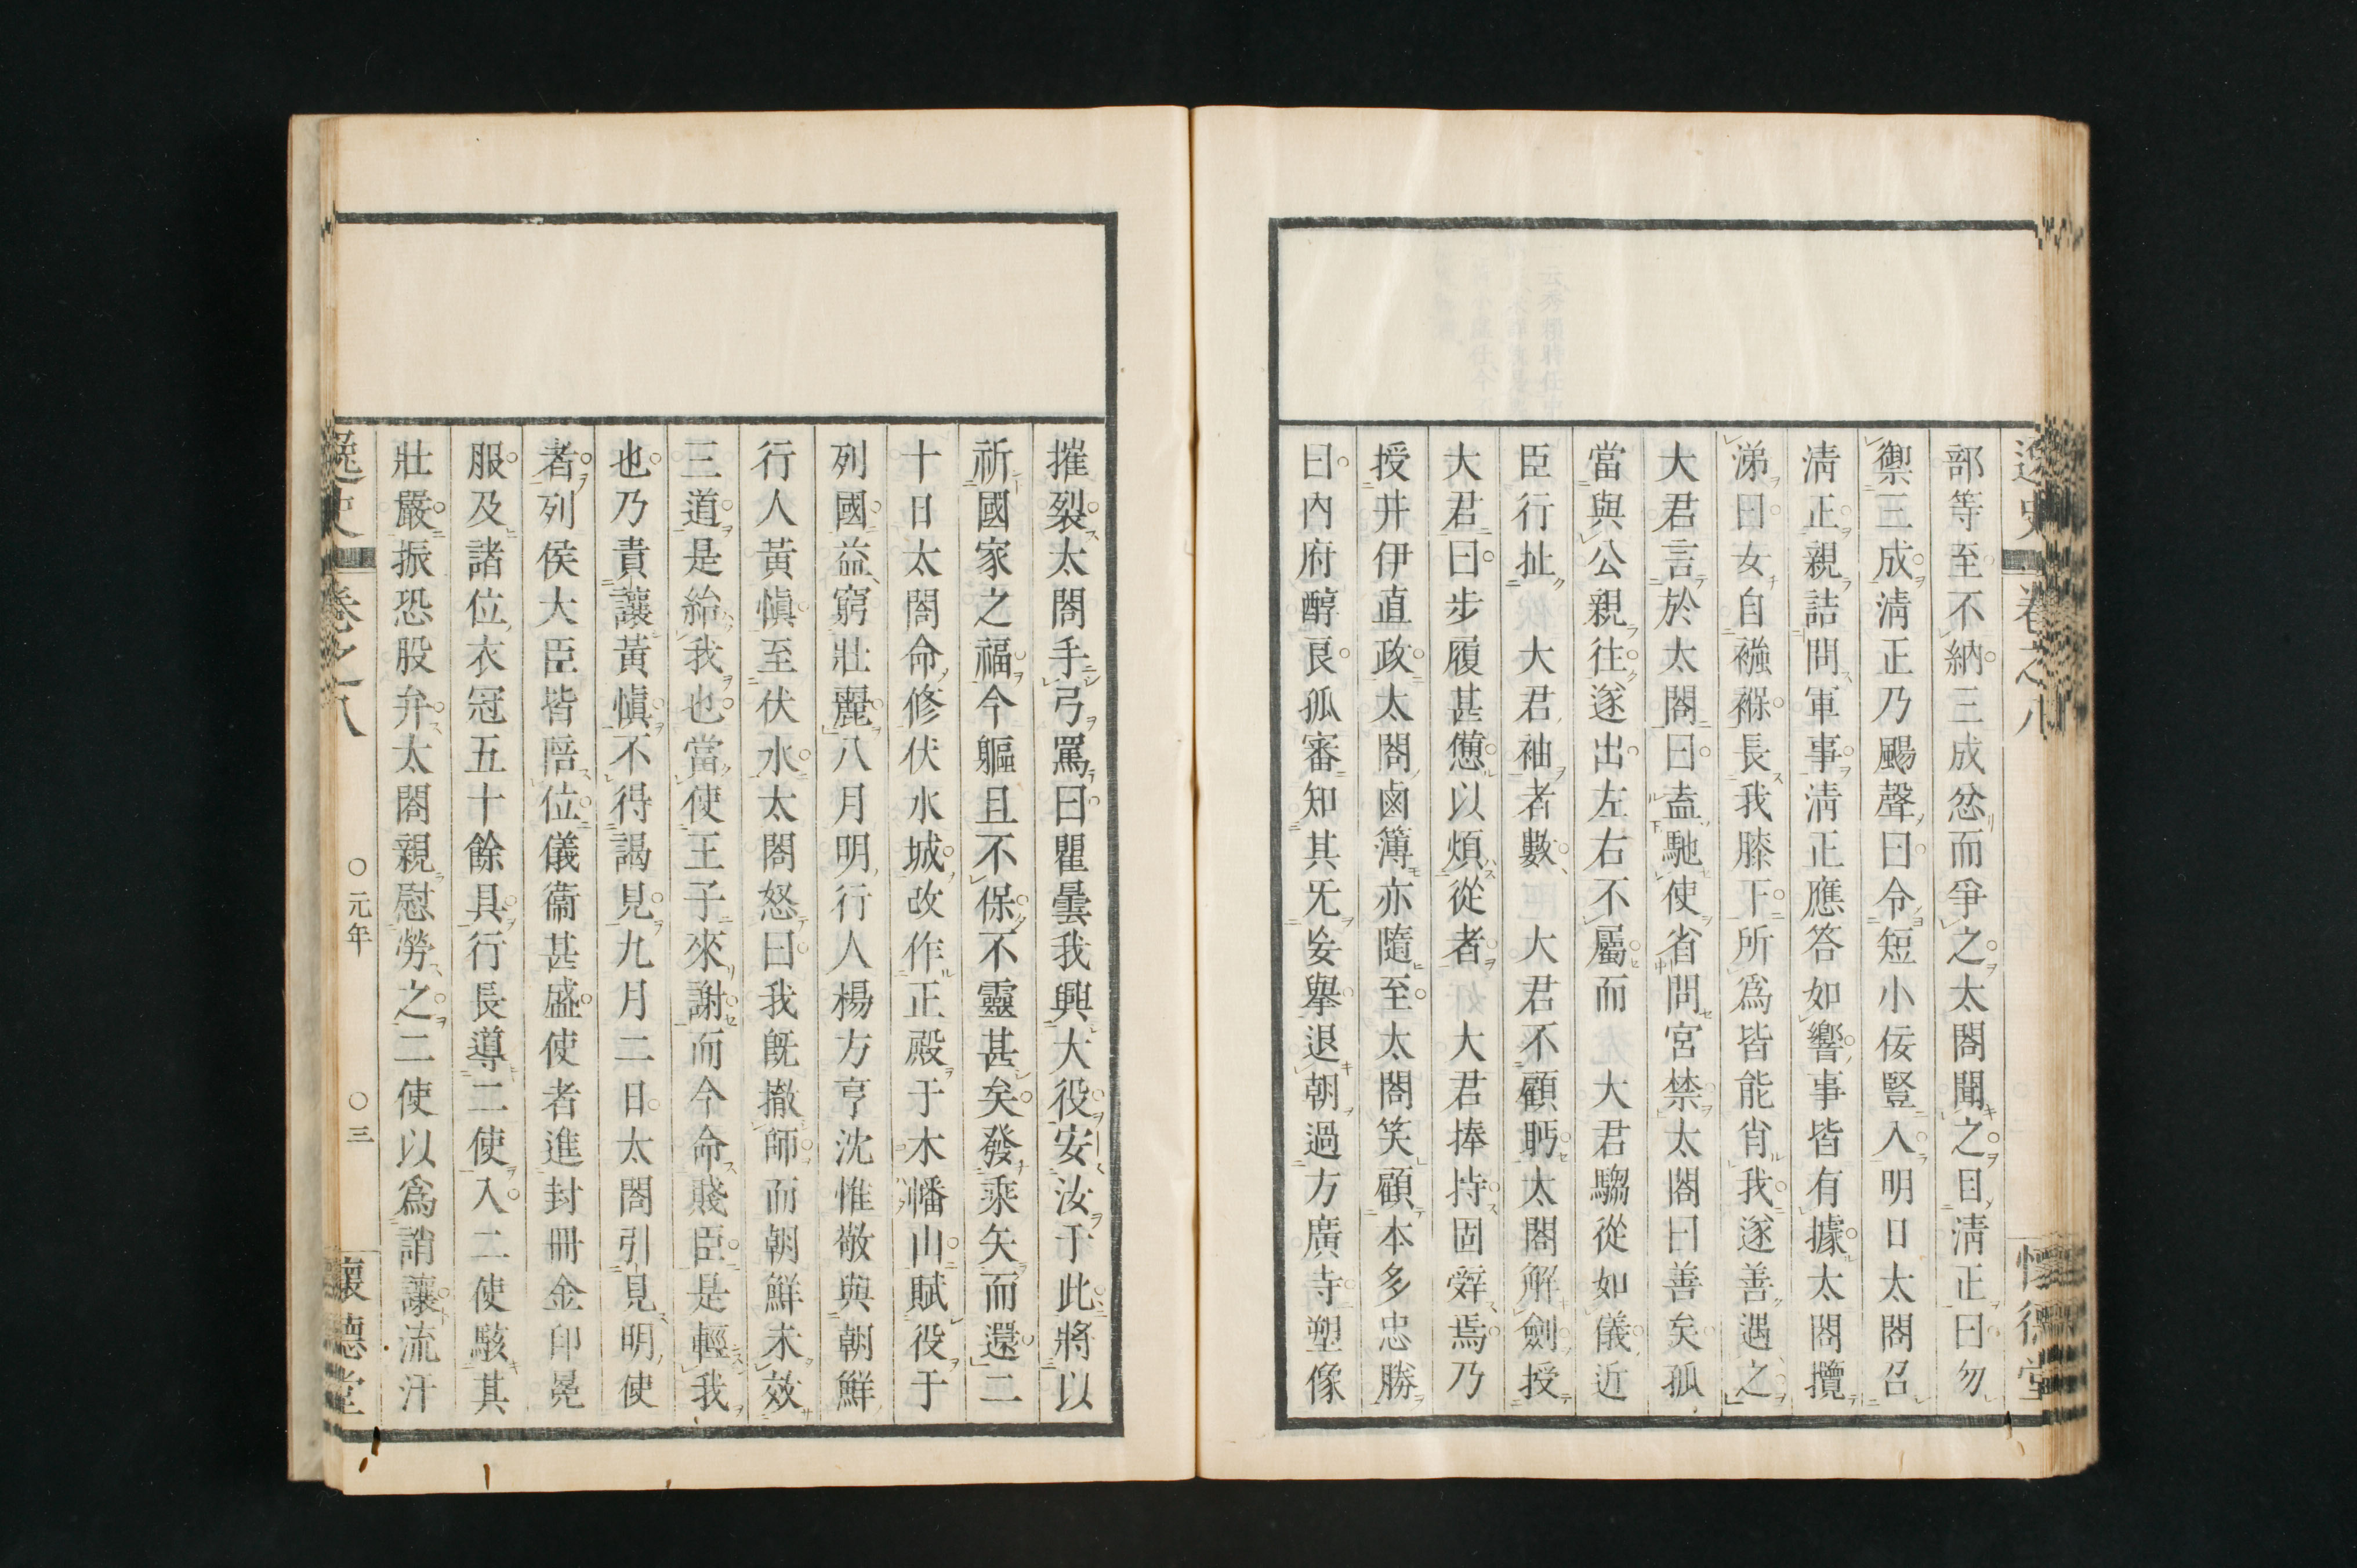 部等至不納三成忿而爭之太閤聞之目淸正曰勿
禦三成淸正乃颺聲曰令短小佞豎入明日太閤召
淸正親詰問軍事淸正應答如響事皆有據太閤攬
涕曰女自襁褓長我膝下所爲皆能肖我遂善遇之
大君言於太閤曰盍馳使省問宮禁太閤曰善矣孤
當與公親往遂出左右不屬而　大君騶從如儀近
臣行扯　大君袖者數　大君不顧眄太閤解劍授
大君曰步履甚憊以煩從者　大君捧持固辭焉乃
授井伊直政太閤鹵簿亦隨至太閤笑顧本多忠勝
曰內府醇良孤審知其旡妄擧退朝過方廣寺塑像
摧裂太閤手弓罵曰瞿曇我興大役安汝于此將以
祈國家之福今軀且不保不靈甚矣發乘矢而還二
十日太閤命修伏水城改作正殿于木幡山賦役于
列國益窮壯麗八月明行人楊方亨沈惟敬與朝鮮
行人黃愼至伏水太閤怒曰我旣撤師而朝鮮未效
三道是紿我也當使王子來謝而今命賤臣是輕我
也乃責讓黃愼不得謁見九月二日太閤引見明使
者列侯大臣皆陪位儀衞甚盛使者進封冊金印冕
服及諸位衣冠五十餘具行長導二使入二使駭其
壯嚴振恐股弁太閤親慰勞之二使以爲誚讓流汗
逸史　卷之八　○元年　○三　懷德堂